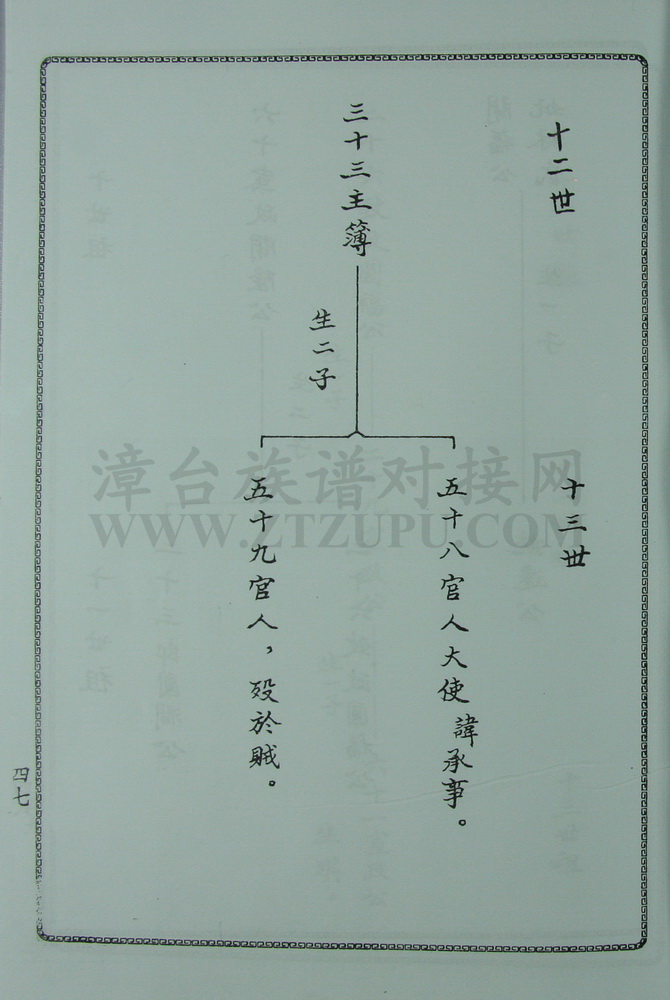 十二世
三十三主簿
生二子
十三世
五十八官人大使諱承事。
五十九官人，歿於賊。
四七
漳台族谱对接网
WWW.ZTZUPU.COM